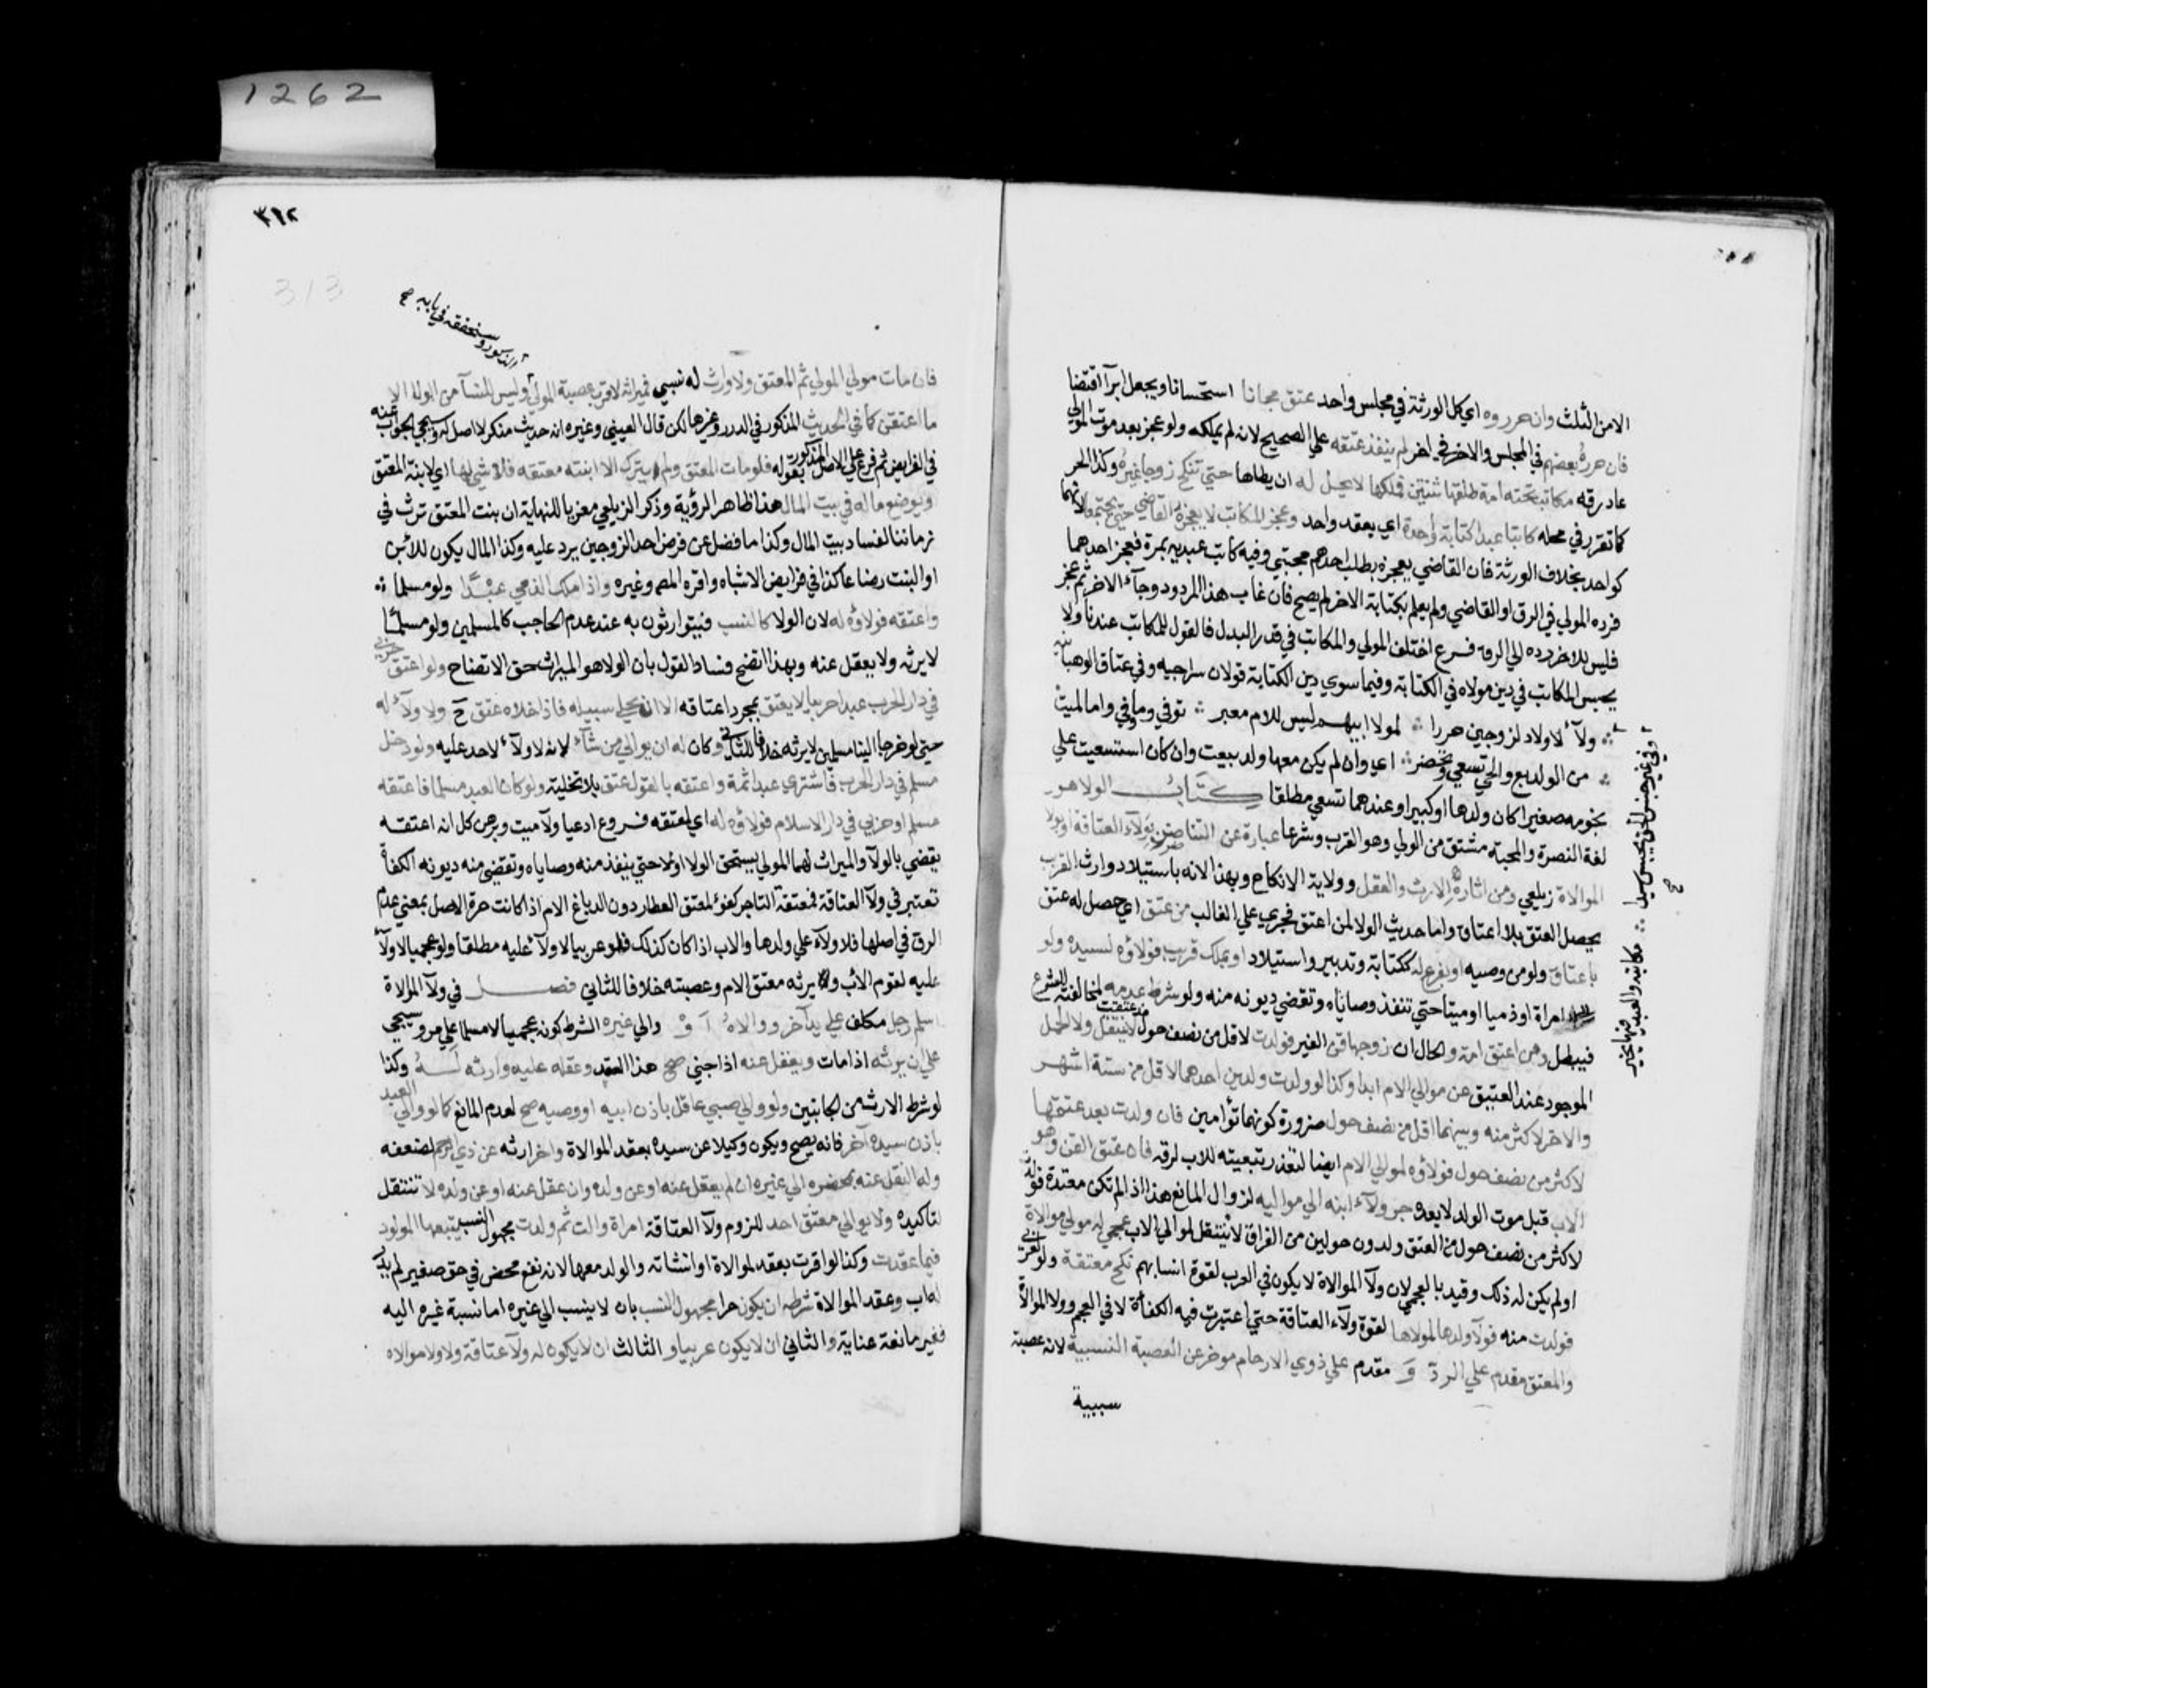 1262
الا من الثلث وان حرروه اي كل الورثة في مجلس واحد عتق مجانا استحسانا ويجعل ابرآ اقتضا
فان حرره بعضهم في المجلس والاخر في اخر لم ينفذ عتقه علي الصحيح لانه لم يملكه ولو عجز بعد موت المولي
عاد رقه مكاتب تحته امة طلقها ثنتين فملكها لا يحل له ان يطاها حتي تنكح زوجا غيره وكذا الحر
كما تقرر في محله كاتبا عبدا كتابة واحدة اي بعقد واحد وعجز المكاتب لا يعجزه القاضي حتي يجتمعا لانهما
كواحد بخلاف الورثة فان القاضي يعجزه بطلب احدهم مجتبي وفيه كاتب عبديه بمرة فعجز احدهما
فرده المولي في الرق او القاضي ولم يعلم بكتابة الاخر لم يصح فان غاب هذا المردود وجآء الاخر ثم عجز
فليس للاخر رده الي الرق فرع اختلف المولي والمكاتب في قدر البدل فالقول للمكاتب عندنا ولا
يحبس المكاتب في دين مولاه في الكتابة وفيما سوي دين الكتابة قولان سراجيه وفي عتاق الوهبانيه
وفي غير جنس الحق يحبس سيدا ∴ مكاتبه والعبد فيها مخير
صح
∴ ولآء لاولاد لزوجين حررا ∴ لمولا ابيهم ليس للام معبر ∴ توفي وما وفي واما لميت
∴ من الولد بع والحي تسعي وتحضر ∴ اي وان لم يكن معها ولد بيعت وان كان استسعيت علي
نجومه صغيرا كان ولدها او كبيرا وعندهما تسعي مطلقا كتاب الولا هو
لغة النصرة والمحبة مشتق من الولي وهو القرب وشرعا عبارة عن التناصر بولآء العتاقة او بولا
الموالاة زيلعي ومن اثاره الارث والعقل وولاية الانكاح وبهذا لانه باستيلاد وارث القرب
يحصل العتق بلا اعتاق واما حديث الولا لمن اعتق فجري علي الغالب من عتق اي حصل له عتق
باعتاق ولو من وصيه او بفرع له ككتابة وتدبير واستيلاد او بملك قريب فولاؤه لسيده ولو
امراة او ذميا او ميتا حتي تنفذ وصاياه وتقضي ديونه منه ولو شرط عدمه لمخالفته الشرع
فيبطل ومن اعتق امة والحال ان زوجها قن الغير فولدت لاقل من نصف حول مذ عتقت لا ينتقل ولا الحمل
الموجود عند العتق عن موالي الام ابدا وكذا لو ولدت ولدين احدهما لاقل من ستة اشهر
والاخر لاكثر منه وبينهما اقل من نصف حول ضرورة كونهما توأمين فان ولدت بعد عتقها
لاكثر من نصف حول فولاؤه لموالي الام ايضا لتعذر تبعيته للاب لرقه فان عتق القن وهو
الاب قبل موت الولد لا بعده جر ولآء ابنه الي مواليه لزوال المانع هذا اذا لم تكن معتدة فولدت
لاكثر من نصف حول من العتق ولدون حولين من الفراق لا ينتقل لموالي الاب عجمي له مولي موالاة
او لم يكن له ذلك وقيد بالعجمي لان ولآ الموالاة لا يكون في العرب لقوة انسابهم نكح معتقة ولو لعربي
فولدت منه فولآ ولدها لمولاها لقوة ولآء العتاقة حتي اعتبرت فيه الكفاءة لا في العجم وولا الموالاة
والمعتق مقدم علي الرد وَ مقدم علي ذوي الارحام موخر عن العصبة النسبية لانه عصبة
سببية
٣١٢
313
المذكور وسنحققه في بابه صح
فان مات مولي المولي ثم المعتق ولا وارث له نسبي فميراثه لاقرب عصبة المولي وليس للنسآ من الولا الا
ما اعتقن كما في الحديث المذكور في الدرر وغيرها لكن قال العيني وغيره انه حديث منكر لا اصل له وسيجي الجواب عنه
في الفرايض ثم فرع علي الاصل المذكور بقوله فلو مات المعتق ولم يترك الا ابنته معتقه فلا شي لها اي لابنة المعتق
ويوضع ماله في بيت المال هذا ظاهر الرؤية وذكر الزيلعي معزيا للنهاية ان بنت المعتق ترث في
زماننا لفساد بيت المال وكذا ما فضل عن فرض احد الزوجين يرد عليه وكذا المال يكون للابن
او البنت رضاعا كذا في فرايض الاشباه واقره المص وغيره واذا ملك الذمي عبدا ولو مسلما ∴
واعتقه فولاؤه له لان الولا كالنسب فيتوارثون به عند عدم الحاجب كالمسلمين ولو مسلما
لا يرثه ولا يعقل عنه وبهذا اتضح فساد القول بان الولا هو الميراث حق الاتضاح ولو اعتق حربي
في دار الحرب عبدا حربيا لا يعتق بمجرد اعتاقه الا ان يخلي سبيله فاذا خلاه عتق ح ولا ولآء له
حتي لو خرجا الينا مسلمين لا يرثه خلافا للثاني وكان له ان يوالي من شآء لانه لا ولآء لاحد عليه ولو دخل
مسلم في دار الحرب فاشتري عبدا ثمة واعتقه بالقول عتق بلا تخلية ولو كان العبد مسلما فاعتقه
مسلم او حربي في دار الاسلام فولاؤه له اي لمعتقه فروع ادعيا ولآ ميت وبرهن كل انه اعتقه
يقضي بالولآ والميراث لهما المولي يستحق الولا اولا حتي ينفذ منه وصاياه وتقضي منه ديونه الكفاءة
تعتبر في ولآ العتاقة فمعتقة التاجر كفؤ لمعتق العطار دون الدباغ الام اذا كانت حرة الاصل بمعني عدم
الرق في اصلها فلا ولآء علي ولدها والاب اذا كان كذلك فلو عربيا لا ولآء عليه مطلقا ولو عجميا لا ولآء
عليه لقوم الاب و يرثه معتق الام وعصبته خلافا للثاني فصل في ولآ الموالاة
اسلم رجل مكلف علي يد آخر ووالاه او والي غيره الشرط كونه عجميا لا مسلما علي ما مر وسيجي
علي ان يرثه اذا مات ويعقل عنه اذا جني صح هذا العقد وعقله عليه وارثه له وكذا
لو شرط الارث من الجانبين ولو والي صبي عاقل باذن ابيه او وصيه صح لعدم المانع كما لو والي العبد
باذن سيده آخر فانه يصح ويكون وكيلا عن سيده بعقد الموالاة واخر ارثه عن ذي الرحم لضعفه
وله النقل عنه بمحضره الي غيره ان لم يعقل عنه او عن ولده وان عقل عنه او عن ولده لا تنتقل
لتاكيده ولا يوالي معتق احد للزوم ولآ العتاقة امراة والت ثم ولدت مجهول النسب يتبعها المولود
فيما عقدت وكذا لو اقرت بعقد لموالاة او انشاته والولد معها لانه نفع محض في حق صغير لم يدر
له اب وعقد الموالاة شرطه ان يكون حرا مجهول النسب بان لا ينسب الي غيره اما نسبة غيره اليه
فغير مانعة عناية والثاني ان لا يكون عربيا و الثالث ان لا يكون له ولآ عتاقة ولا ولا موالاه